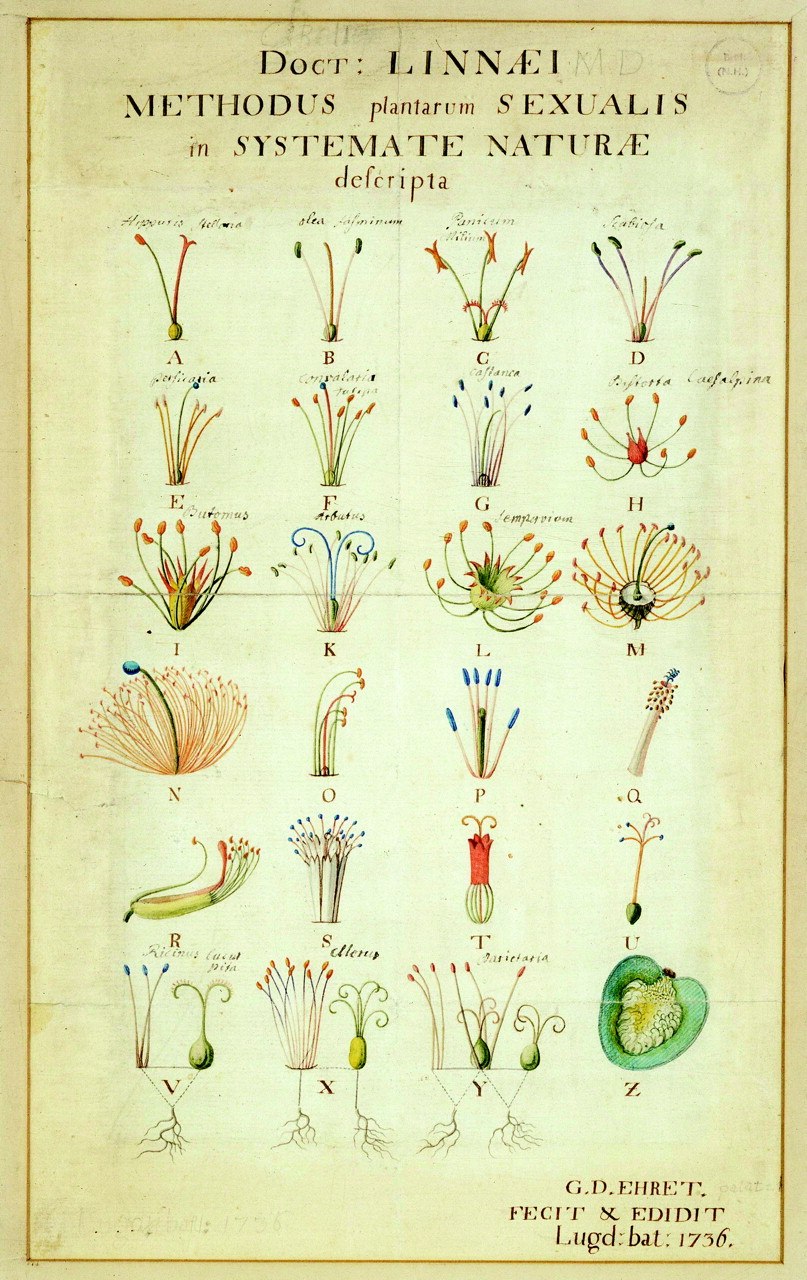 Doct: LINNÆI M D
METHODUS plantarum SEXUALIS
in SYSTEMATE NATURÆ
deſcripta
(N.H.)
Hippuris
olea Jasminum
Panicum
Scabiosa
A B C D
Persicaria
Convalaria
Castanea
Bistorta Caesalpina
E F G H
Butomus
Arbutus
Sempervivum
I K L M
N O P Q
R S T U
Ricinus Cucur
bita
Parietaria
V X Y Z
G.D. EHRET.
FECIT & EDIDIT
Lugd: bat: 1736.